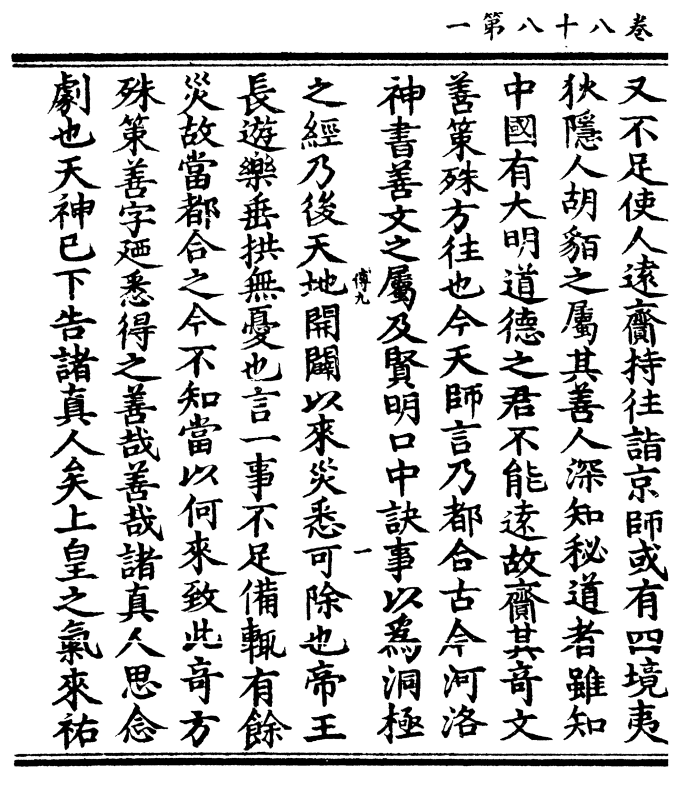 卷八十八第一
又不足使人遠齎持往詣京師或有四境夷
狄隱人胡貊之屬其善人深知秘道者雖知
中國有大明道德之君不能遠故齎其竒文
善策殊方往也今天師言乃都合古今河洛
神書善文之屬及賢明口中訣事以爲洞極
傅九
一
之經乃後天地開闢以來災悉可除也帝王
長遊樂垂拱無憂也言一事不足備輙有餘
災故當都合之今不知當以何來致此竒方
殊策善字廼悉得之善哉善哉諸真人思念
劇也天神已下告諸真人矣上皇之氣來祐